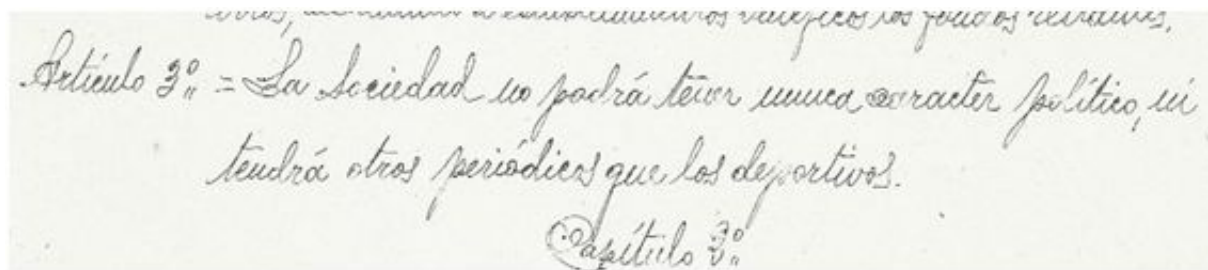 los fondos
Artículo 3º = La Sociedad no podrá tener nunca caracter político, ni
tendrá otros periódicos que los deportivos.
Capítulo 2º